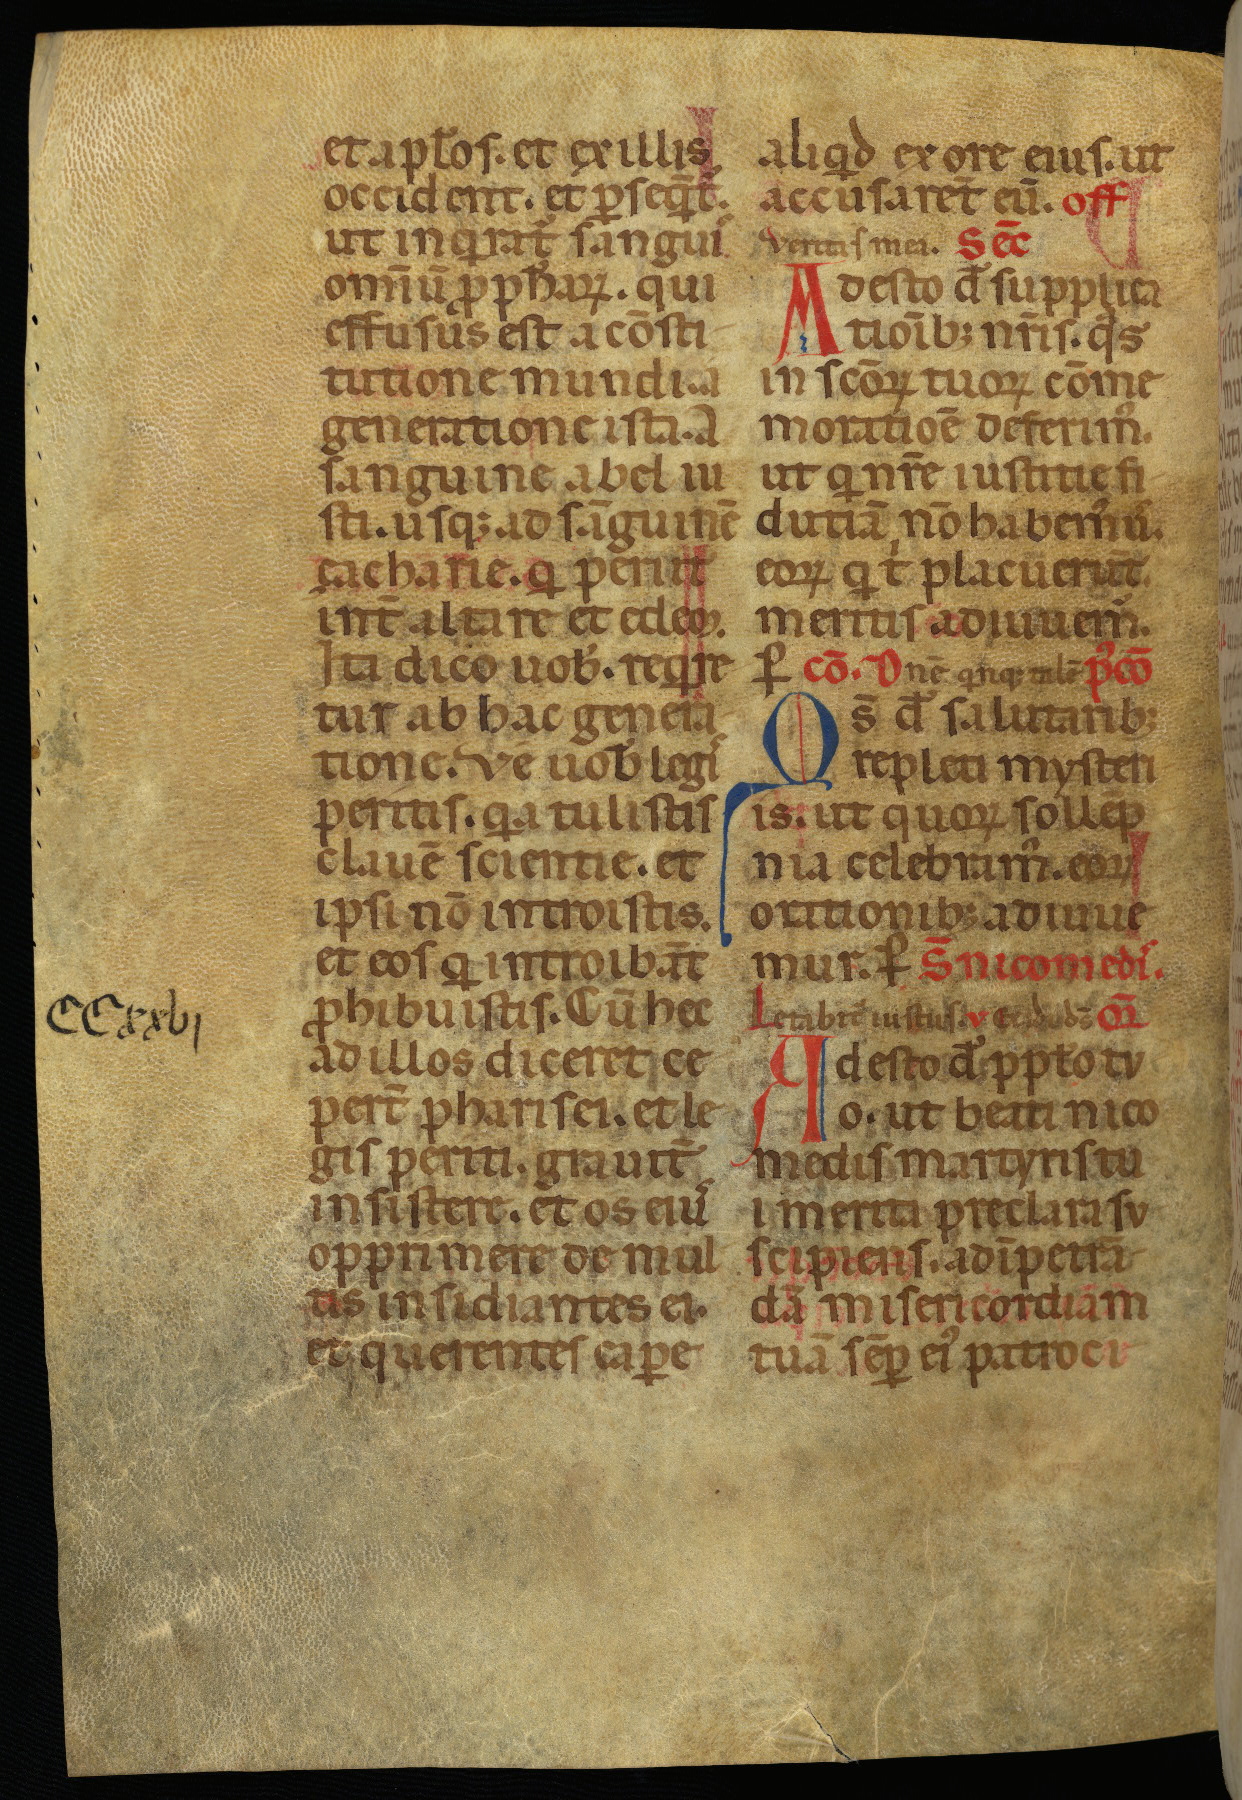 et apłos. et ex illis
occident. et ꝑseq̄nt̄.
ut inqͥrat̄ sanguis
om̄iū ꝓphaꝝ. qui
effusus est a cōsti
tutione mundi. a
generatione ista. a
sanguine abel iu
sti. usq; ad sanguinē
çacharie. qͥ periit
int̄ altare et edeꝫ.
Ita dico uob̄. reqͥre
tur ab hac genera
tione. Ve uob̄ legis
peritis. qͥa tulistis
clauē scientie. et
ipsi nō introistis.
et eos qͥ introibāt
ꝓhibuistis. Cū hec
CCxxvi
ad illos diceret ce
pert̄ pharisei. et le
gis periti. grauit̄
insistere. et os eius
opprimere de mul
tis insidiantes ei.
et querentes caꝑe
aliqͥd ex ore eius. ut
accusarent̄ eū. off
Veritas mea. Sec̄
Adesto d̄s supplica
tioib; nr̄is. qs̄
in scōꝝ tuoꝝ cōme
moratioē deferimꝰ.
ut qͥ nr̄e iustitie fi
dutiā nō habemꝰ.
eoꝝ qͥ t̄ placuerūt.
meritis adiuuemꝰ.
ꝑ cō. Dn̄e qͥnq; talē p̄cō
Qs̄ d̄s salutarib;
repleti mysteri
is. ut quoꝝ sollēp
nia celebramꝰ. eoꝝ
orationib; adiuue
mur. ꝑ S̄ nicomedis.
Letabit̄ iustus. v Exaudi ds̄ or̄
Adesto d̄s pp̄lo tu
o. ut beati nico
medis martyris tu
i merita preclara su
scipiens. ad īpetrā
dā misericordiam
tuā sēꝑ eiꝰ patroci